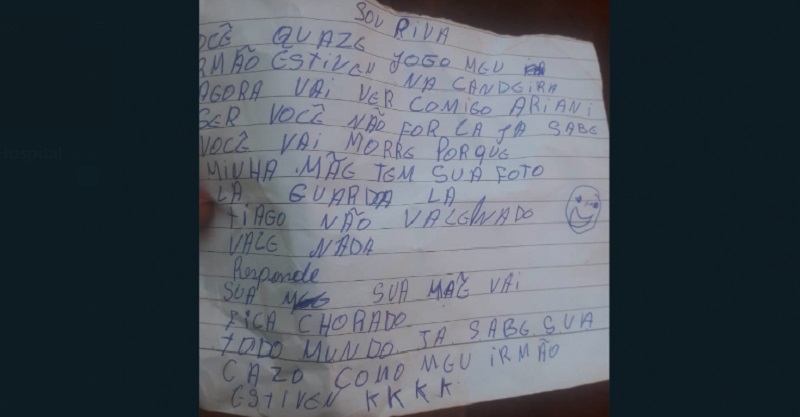 SOU RIVA
OCÊ QUAZE
RMÃO ESTIVEN JOGO MEU
NA CANDEIRA
AGORA VAI VER COMIGO ARIANI
SER VOCÊ NÃO FOR LA JA SABE
VOCÊ VAI MORRE PORQUE
MINHA MÃE TEM SUA FOTO
LA GUARDA LA
TIAGO NÃO VALE NADO
VALE NADA
Responde
SUA SUA MÃE VAI
FICA CHORADO
TODO MUNDO JA SABE SUA
CAZO COMO MEU IRMÃO
ESTIVEN KKKK
ospital